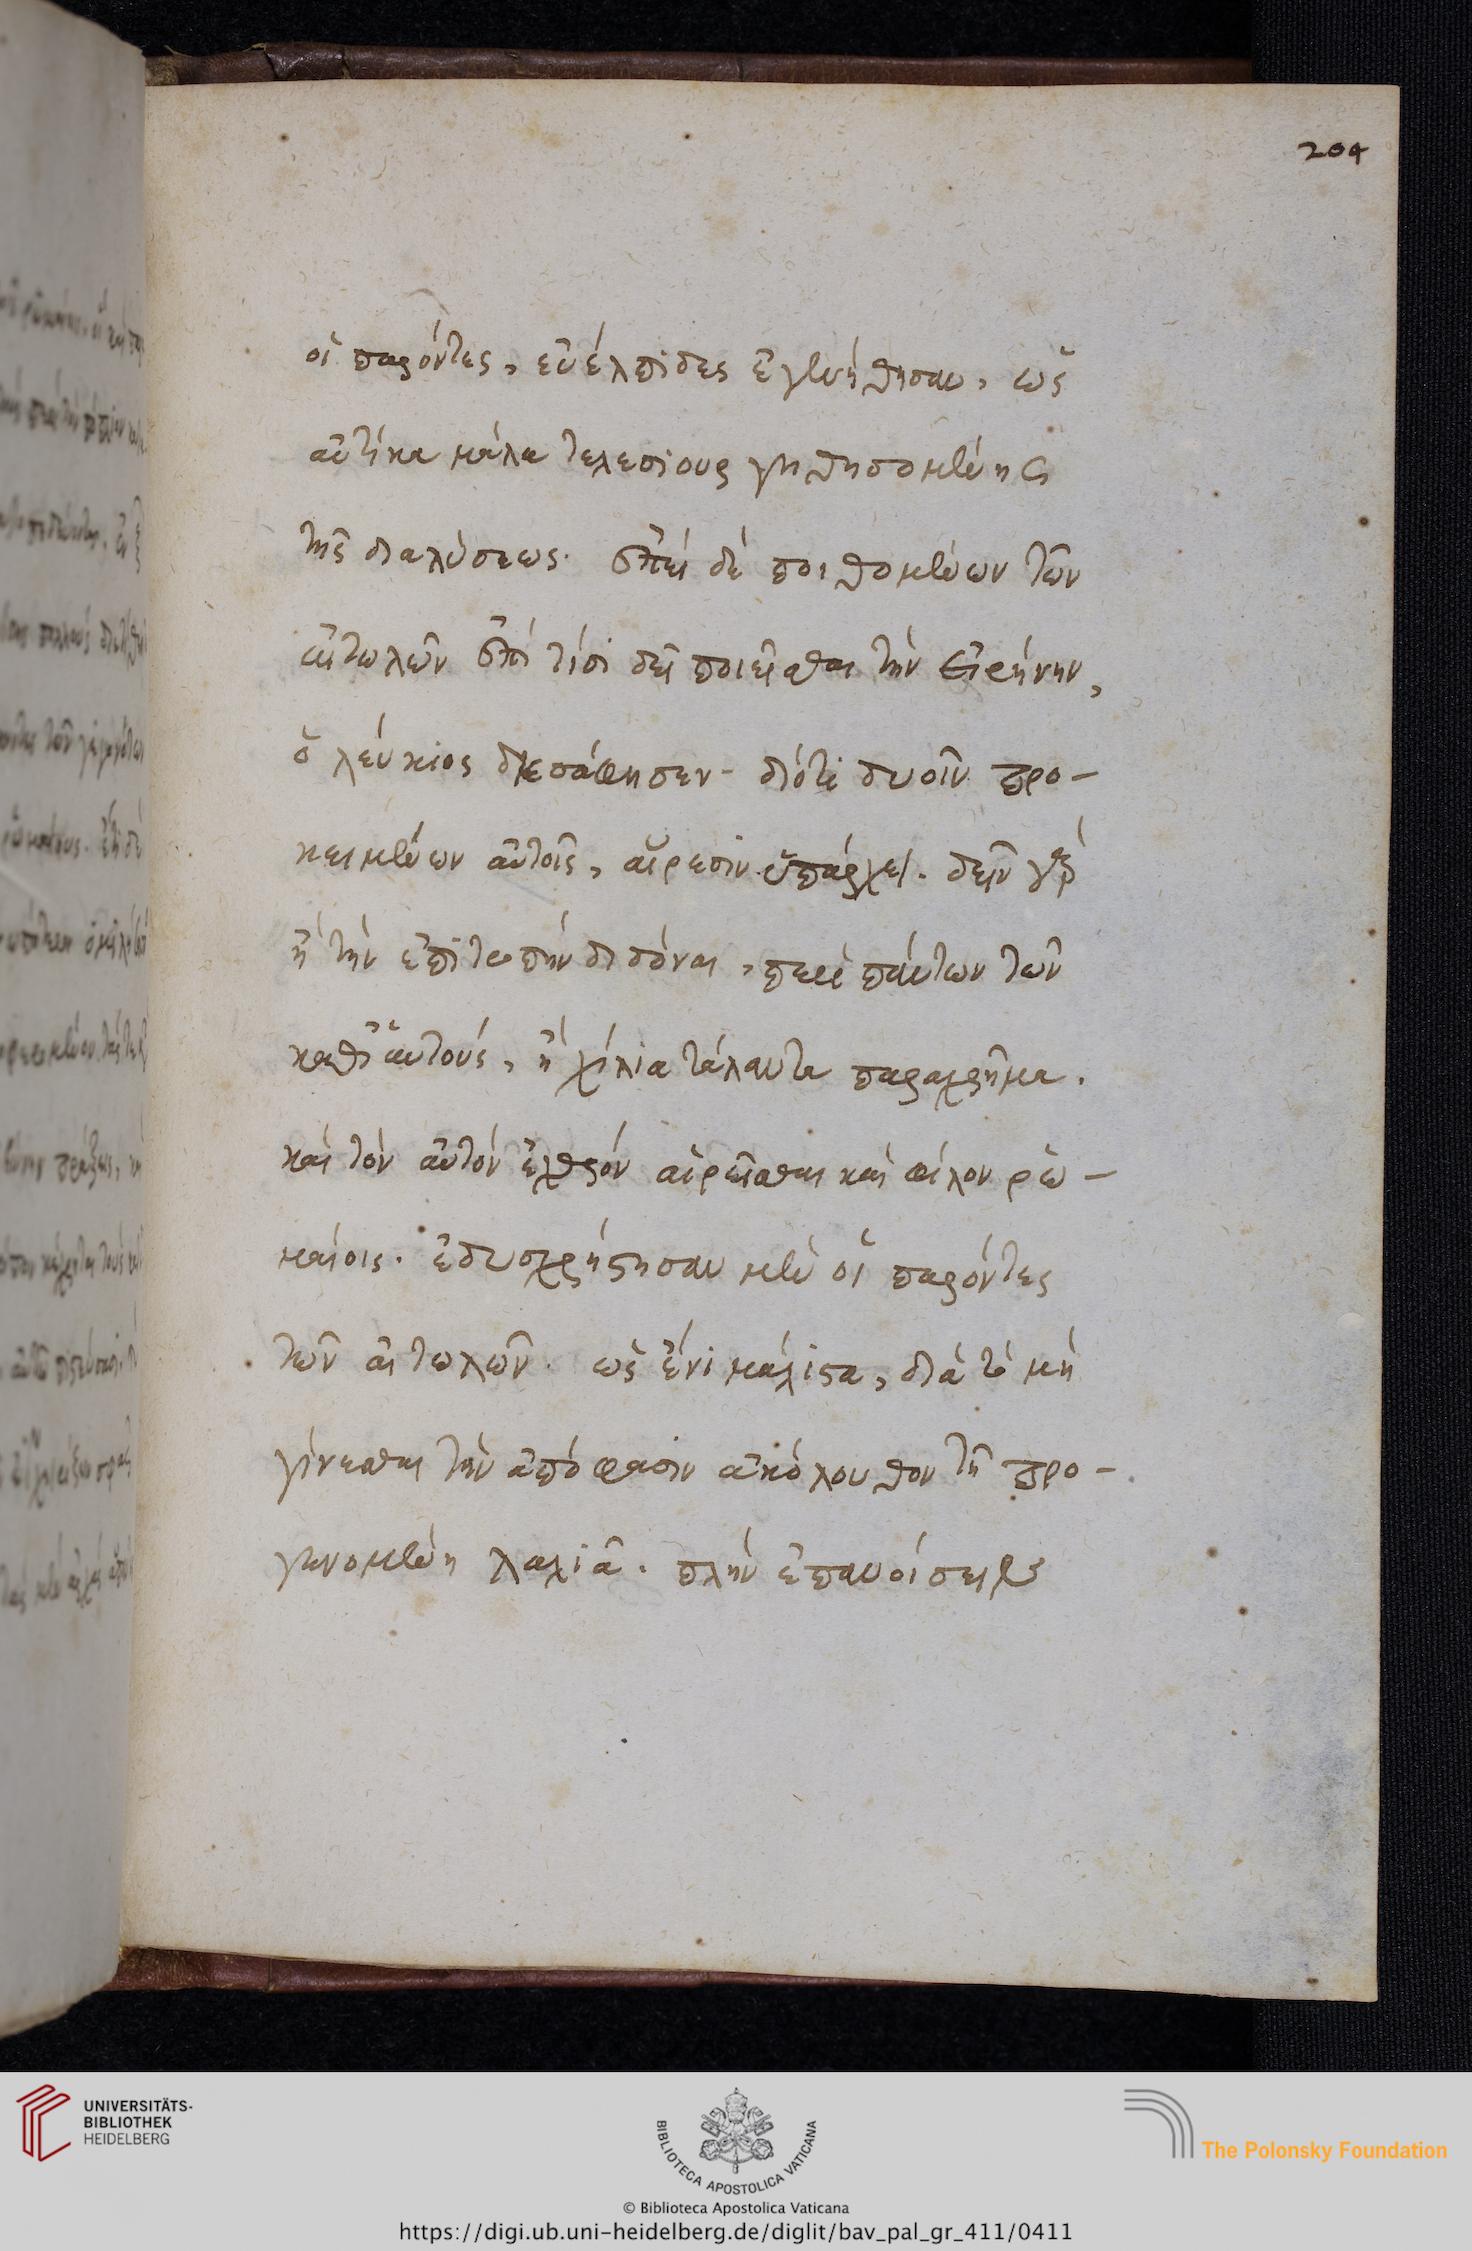 204
οἱ παρόντες, εὐέλπιδες ἐγενήθησαν, ὡς
αὐτίκα μάλα τελεσιουργηθησομένης
τῆς διαλύσεως. ἐπεὶ δὲ ποιθομένων τῶν
αἰτωλῶν ἐπὶ τίσι δεῖ ποιεῖσθαι τὴν εἰρήνην,
ὁ λεύκιος διεσάφησεν - διότι δυοῖν προ-
κειμένων αὐτοῖς, αἵρεσιν ὑπάρχει. δεῖν γὰρ
ἢ τὴν ἐπιτροπὴν διδόναι, περὶ πάντων τῶν
καθ' αὑτούς, ἢ χίλια τάλαντα παραχρῆμα.
καὶ τὸν αὐτὸν ἐχθρόν αἱρεῖσθαι καὶ φίλον ρω-
μαίοις. ἐδυσχρήστησαν μὲν οἱ παρόντες
τῶν αἰτωλῶν. ὡς ἔνι μάλιστα, διὰ τὸ μὴ
γίνεσθαι τὴν ἀπόφασιν ἀκόλουθον τῇ προ-
γενομένῃ λαλιᾷ. πλὴν ἐπανοίσειν
UNIVERSITÄTS-
BIBLIOTHEK
HEIDELBERG
BIBLIOTECA APOSTOLICA VATICANA
© Biblioteca Apostolica Vaticana
The Polonsky Foundation
https://digi.ub.uni-heidelberg.de/diglit/bav_pal_gr_411/0411